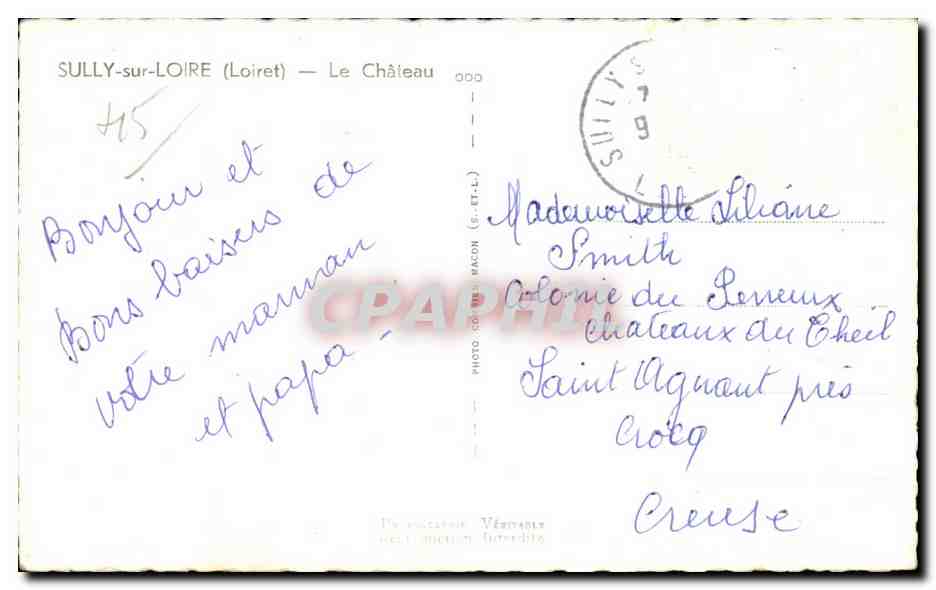 SULLY-sur-LOIRE (Loiret) — Le Château
45
Bonjour et
Bons baisers de
votre maman
et papa -
PHOTO COMBIER MACON (S.-ET-L.)
SULLY S
7
9
Mademoiselle Liliane
Smith
Colonie du Perreux
chateaux du Theil
Saint Agnant près
Crocq
Creuse
VÉRITABLE
Interdite
CPAPHIL